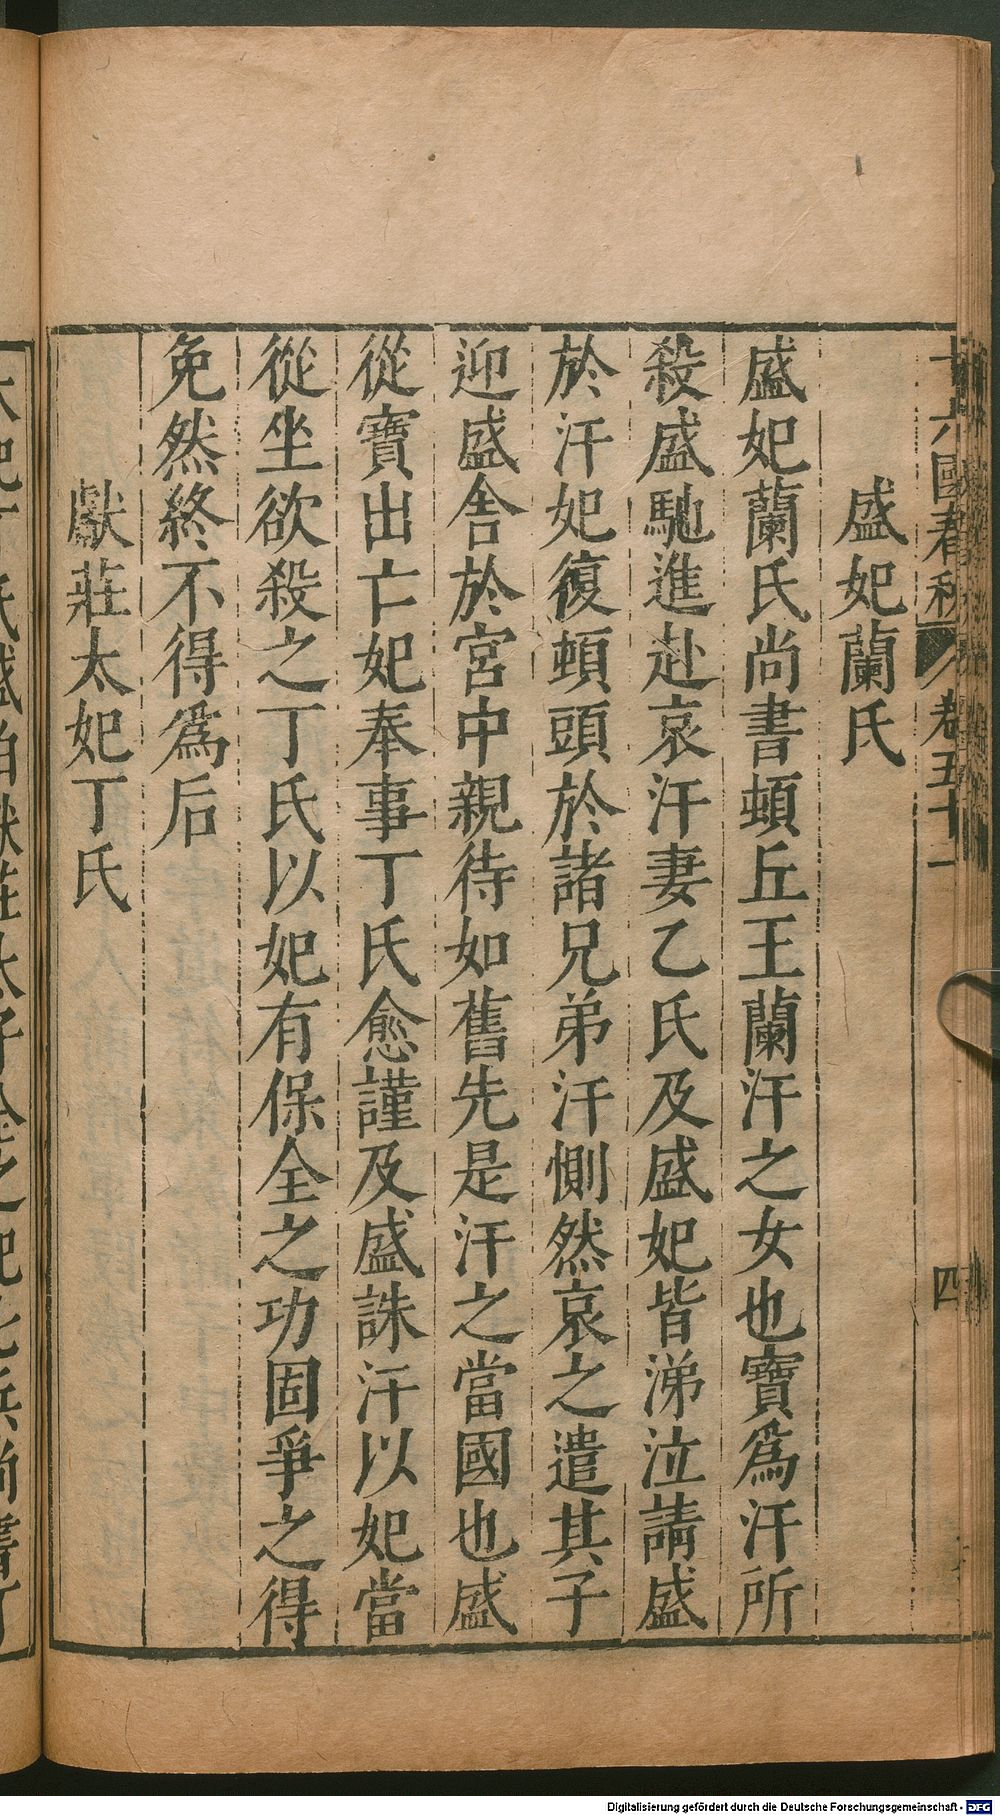 十六國春秋 卷五十一 四
盛妃蘭氏
盛妃蘭氏尚書頓丘王蘭汗之女也寶爲汗所
殺盛馳進赴哀汗妻乙氏及盛妃皆涕泣請盛
於汗妃復頓頭於諸兄弟汗惻然哀之遣其子
迎盛舍於宮中親待如舊先是汗之當國也盛
從寶出亡妃奉事丁氏愈謹及盛誅汗以妃當
從坐欲殺之丁氏以妃有保全之功固爭之得
免然終不得爲后
獻莊太妃丁氏
Digitalisierung gefördert durch die Deutsche Forschungsgemeinschaft - DFG